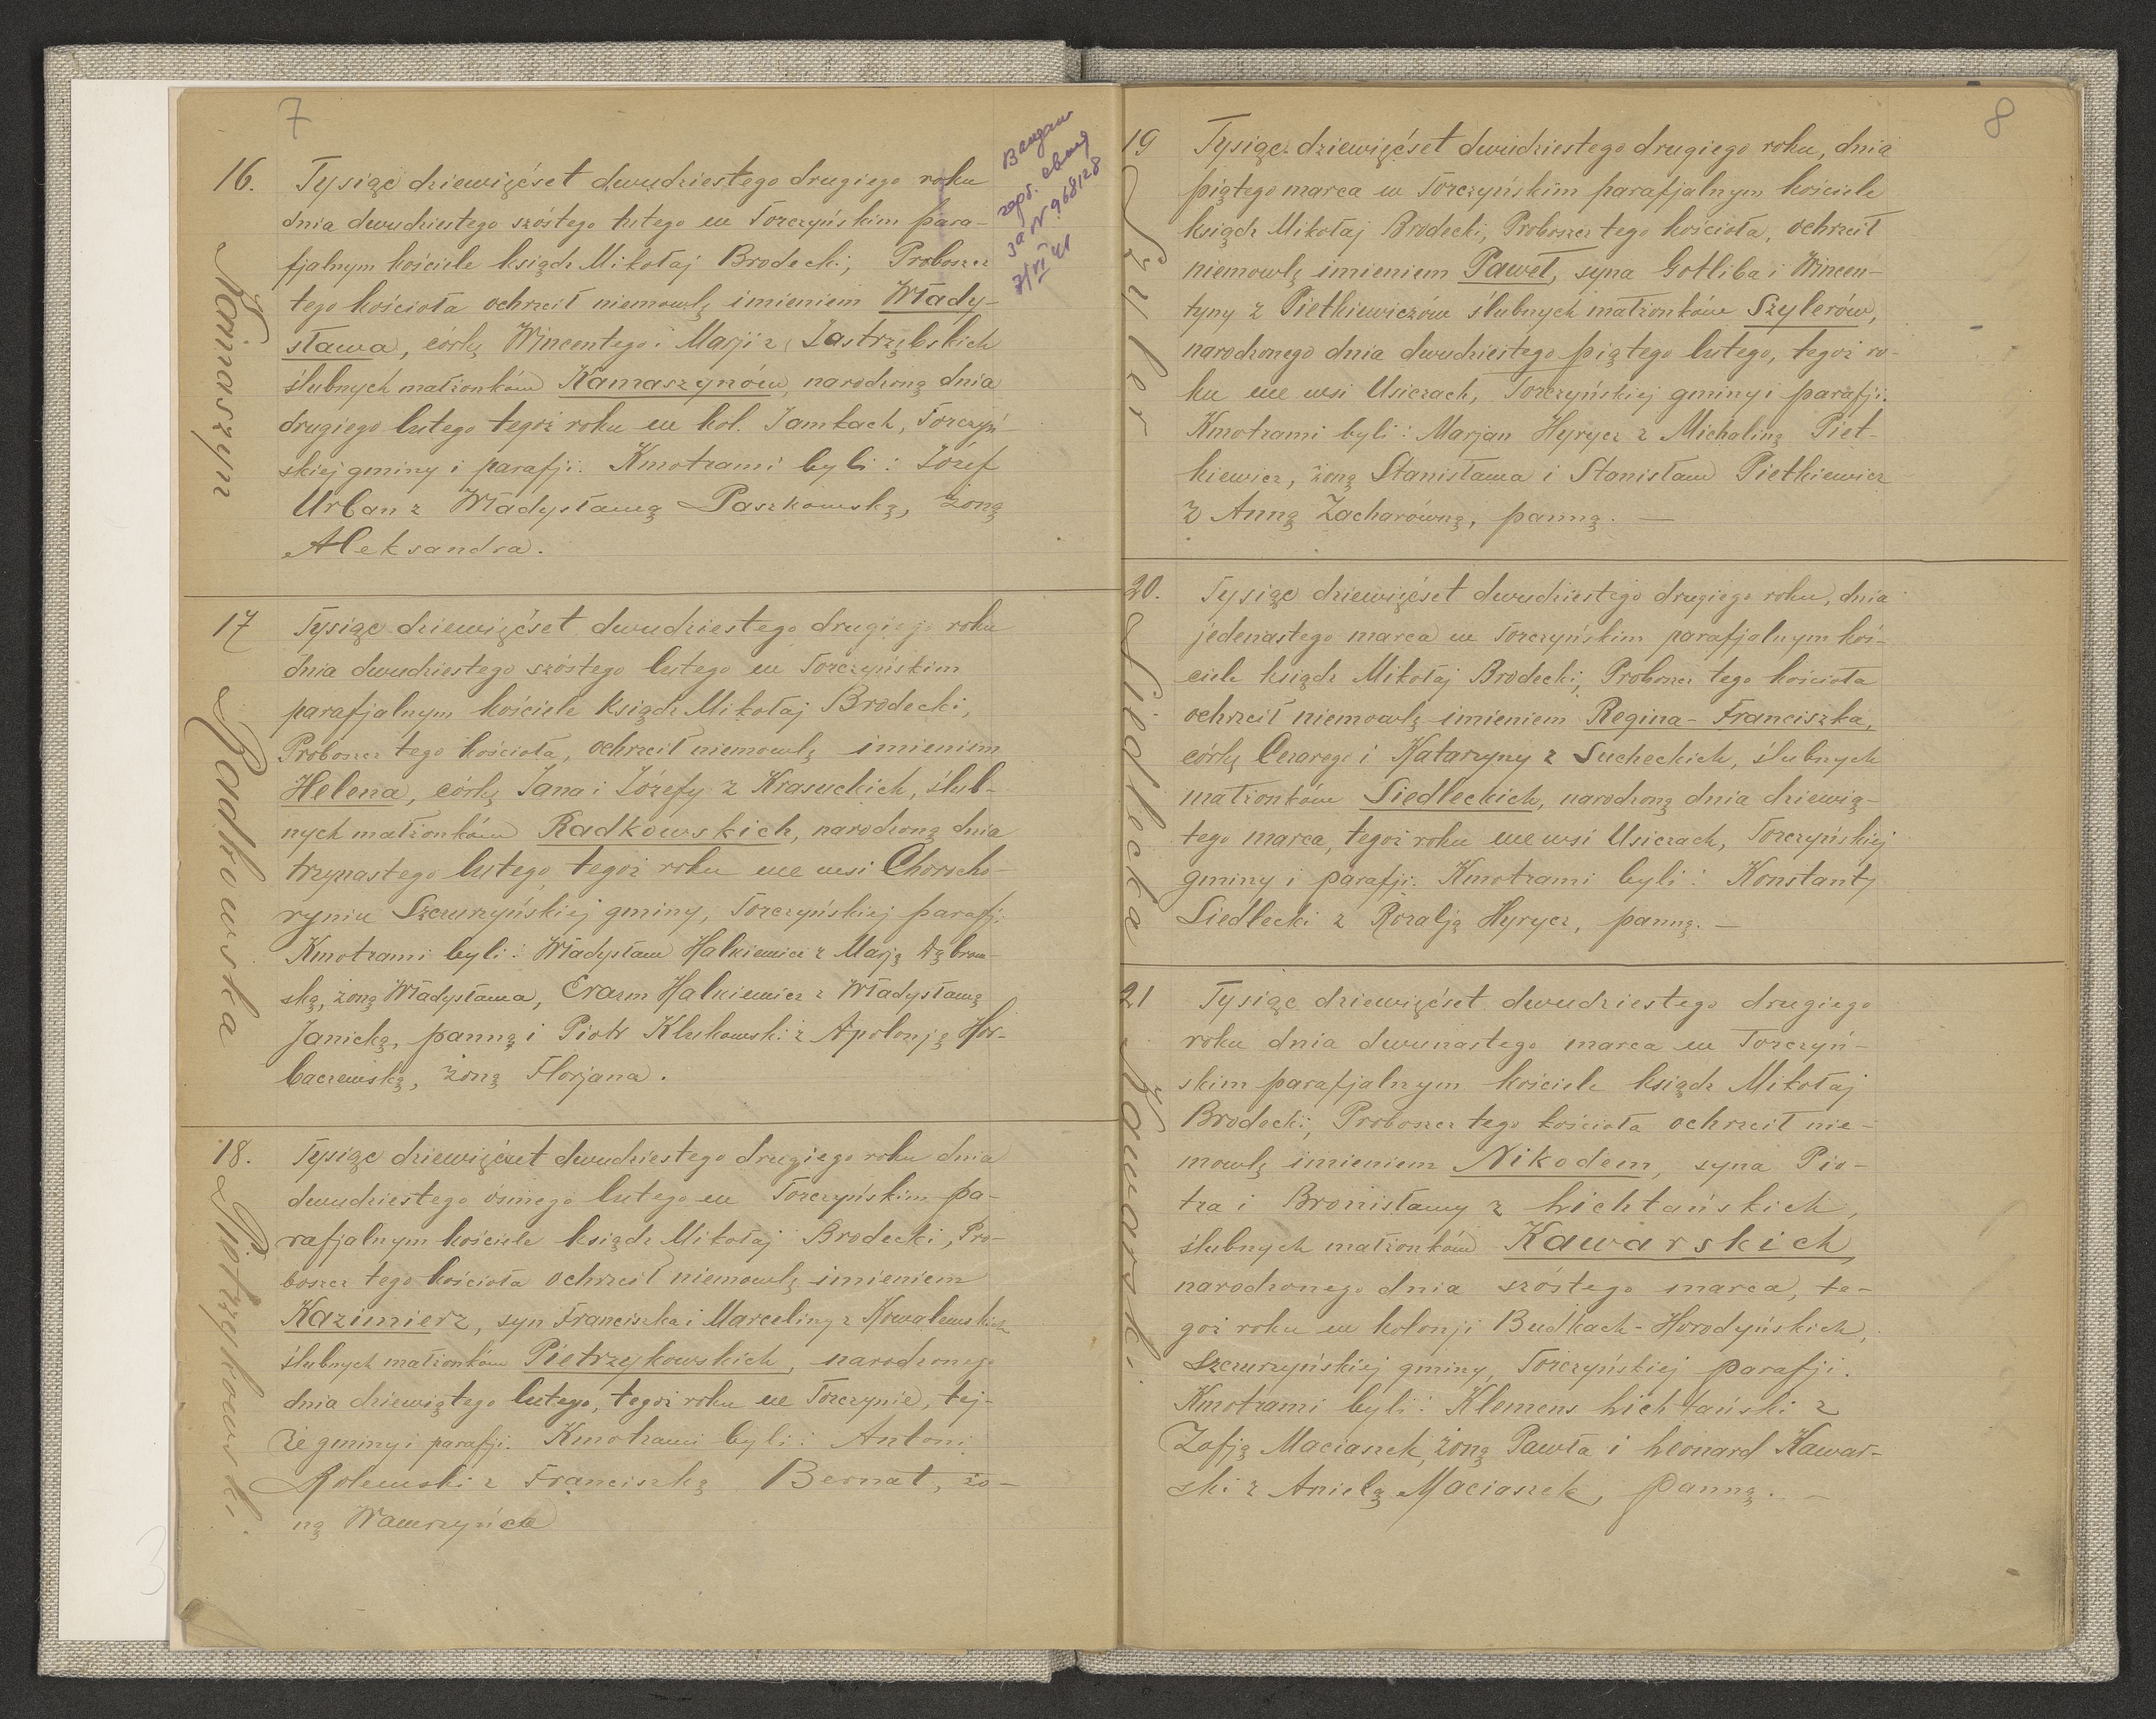 7
16.
Kamaszyn
Tysiąc dziewięćset dwudziestego drugiego roku
dnia dwudziestego szóstego lutego w Torczyńskim para-
fjalnym kościele ksiądz Mikołaj Brodecki, Proboszcz
tego kościoła ochrzcił niemowlę imieniem Włady-
sława, córkę Wincentego i Marji z Jastrzębskich
ślubnych małżonków Kamaszynów, narodzoną dnia
drugiego lutego tegoż roku w kol. Jamkach, Torczyń-
skiej gminy i parafji. Kmotrami byli: Józef
Urban z Władysławą Paszkowską, żoną
Aleksandra.
за № 968128
7/VI 41
17
Radkowska
Tysiąc dziewięćset dwudziestego drugiego roku
dnia dwudziestego szóstego lutego w Torczyńskim
parafjalnym kościele ksiądz Mikołaj Brodecki,
Proboszcz tego kościoła, ochrzcił niemowlę imieniem
Helena, córkę Jana i Józefy z Krasuckich, ślub-
nych małżonków Radkowskich, narodzoną dnia
trzynastego lutego tegoż roku we wsi Chorocho-
ryniu Szczurzyńskiej gminy, Torczyńskiej parafji
Kmotrami byli: Władysław Halkiewicz z Marją Dąbrow-
ską, żoną Władysława, Erazm Halkiewicz z Władysławą
Janicką, panną i Piotr Klukowski z Apolonją Hor-
baczewską, żoną Florjana.
18.
Pietrzykowski.
Tysiąc dziewięćset dwudziestego drugiego roku dnia
dwudziestego ósmego lutego w Torczyńskim pa-
rafjalnym kościele ksiądz Mikołaj Brodecki, Pro-
boszcz tego kościoła ochrzcił niemowlę imieniem
Kazimierz, syn Franciszka i Marceliny z Kowalewskich
ślubnych małżonków Pietrzykowskich, narodzonego
dnia dziewiątego lutego, tegoż roku w Torczynie, tej-
że gminy i parafji. Kmotrami byli: Antoni
Rolewski z Franciszką Bernat, żo-
ną Wawrzyńca
8
19
Szyler
Tysiąc dziewięćset dwudziestego drugiego roku, dnia
piątego marca w Torczyńskim parafjalnym kościele
ksiądz Mikołaj Brodecki, Proboszcz tego kościoła, ochrzcił
niemowlę imieniem Paweł, syna Gotliba i Wincen-
tyny z Pietkiewiczów ślubnych małżonków Szylerów,
narodzonego dnia dwudziestego piątego lutego, tegoż ro-
ku we wsi Usiczach, Torczyńskiej gminy i parafji.
Kmotrami byli: Marjan Hyrycz z Michaliną Piet-
kiewicz, żoną Stanisława i Stanisław Pietkiewicz
z Anną Zacharówną, panną. —
20.
Siedlecka
Tysiąc dziewięćset dwudziestego drugiego roku, dnia
jedenastego marca w Torczyńskim parafjalnym koś-
ciele ksiądz Mikołaj Brodecki, Proboszcz tego kościoła
ochrzcił niemowlę imieniem Regina-Franciszka,
córkę Cezarego i Katarzyny z Sucheckich, ślubnych
małżonków Siedleckich, narodzoną dnia dziewią-
tego marca, tegoż roku we wsi Usiczach, Torczyńskiej
gminy i parafji. Kmotrami byli: Konstanty
Siedlecki z Rozalją Hyrycz, panną. —
21
Kawarski.
Tysiąc dziewięćset dwudziestego drugiego
roku dnia dwunastego marca w Torczyń-
skim parafjalnym kościele ksiądz Mikołaj
Brodecki, Proboszcz tego kościoła ochrzcił nie-
mowlę imieniem Nikodem, syna Pio-
tra i Bronisławy z Lichtańskich,
ślubnych małżonków Kawarskich,
narodzonego dnia szóstego marca, te-
goż roku w kolonji Budkach-Horodyńskich,
Szczurzyńskiej gminy, Torczyńskiej parafji.
Kmotrami byli: Klemens Lichtański z
Zofją Maciaszek, żoną Pawła i Leonard Kawar-
ski z Anielą Maciaszek, panną. —